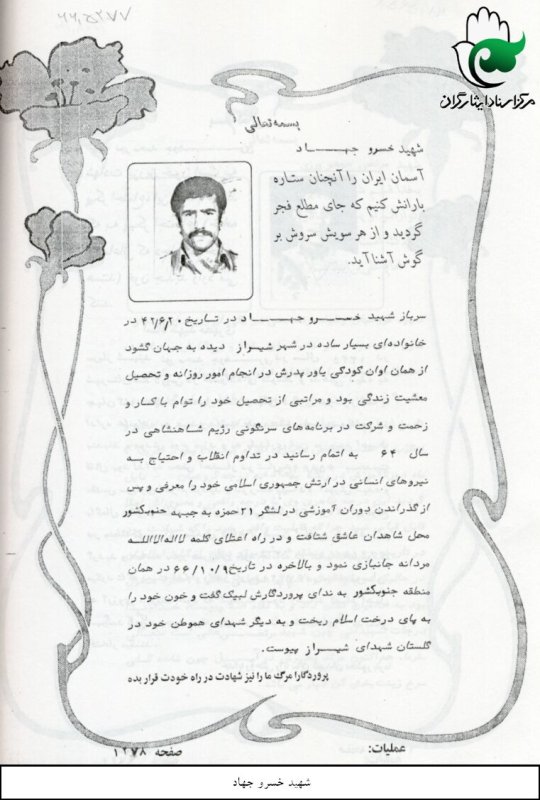 ۶۶,۵۲۷۷
مرکز اسناد ایثارگران
بسمه تعالی
شهید خسرو جهاد
آسمان ایران را آنچنان ستاره
بارانش کنیم که جای مطلع فجر
گردید و از هر سویش سروش بر
گوش آشنا آید.
سرباز شهید خسرو جهاد در تاریخ ۴۲/۶/۲۰ در
خانواده‌ای بسیار ساده در شهر شیراز دیده به جهان گشود
از همان اوان کودگی یاور پدرش در انجام امور روزانه و تحصیل
معشیت زندگی بود و مراتبی از تحصیل خود را توام با کار و
زحمت و شرکت در برنامه‌های سرنگونی رژیم شاهنشاهی در
سال ۶۴ به اتمام رسانید در تداوم انقلاب و احتیاج به
نیروهای انسانی در ارتش جمهوری اسلامی خود را معرفی و پس
از گذراندن دوران آموزشی در لشگر ۲۱ حمزه به جبهه جنوبکشور
محل شاهدان عاشق شتافت و در راه اعتلای کلمه لااله‌الاالله
مردانه جانبازی نمود و بالاخره در تاریخ ۶۶/۱۰/۹ در همان
منطقه جنوبکشور به ندای پروردگارش لبیک گفت و خون خود را
به پای درخت اسلام ریخت و به دیگر شهدای هموطن خود در
گلستان شهدای شیراز پیوست.
پروردگارا مرگ ما را نیز شهادت در راه خودت قرار بده
عملیات:
صفحه ۱۲۷۸
شهید خسرو جهاد